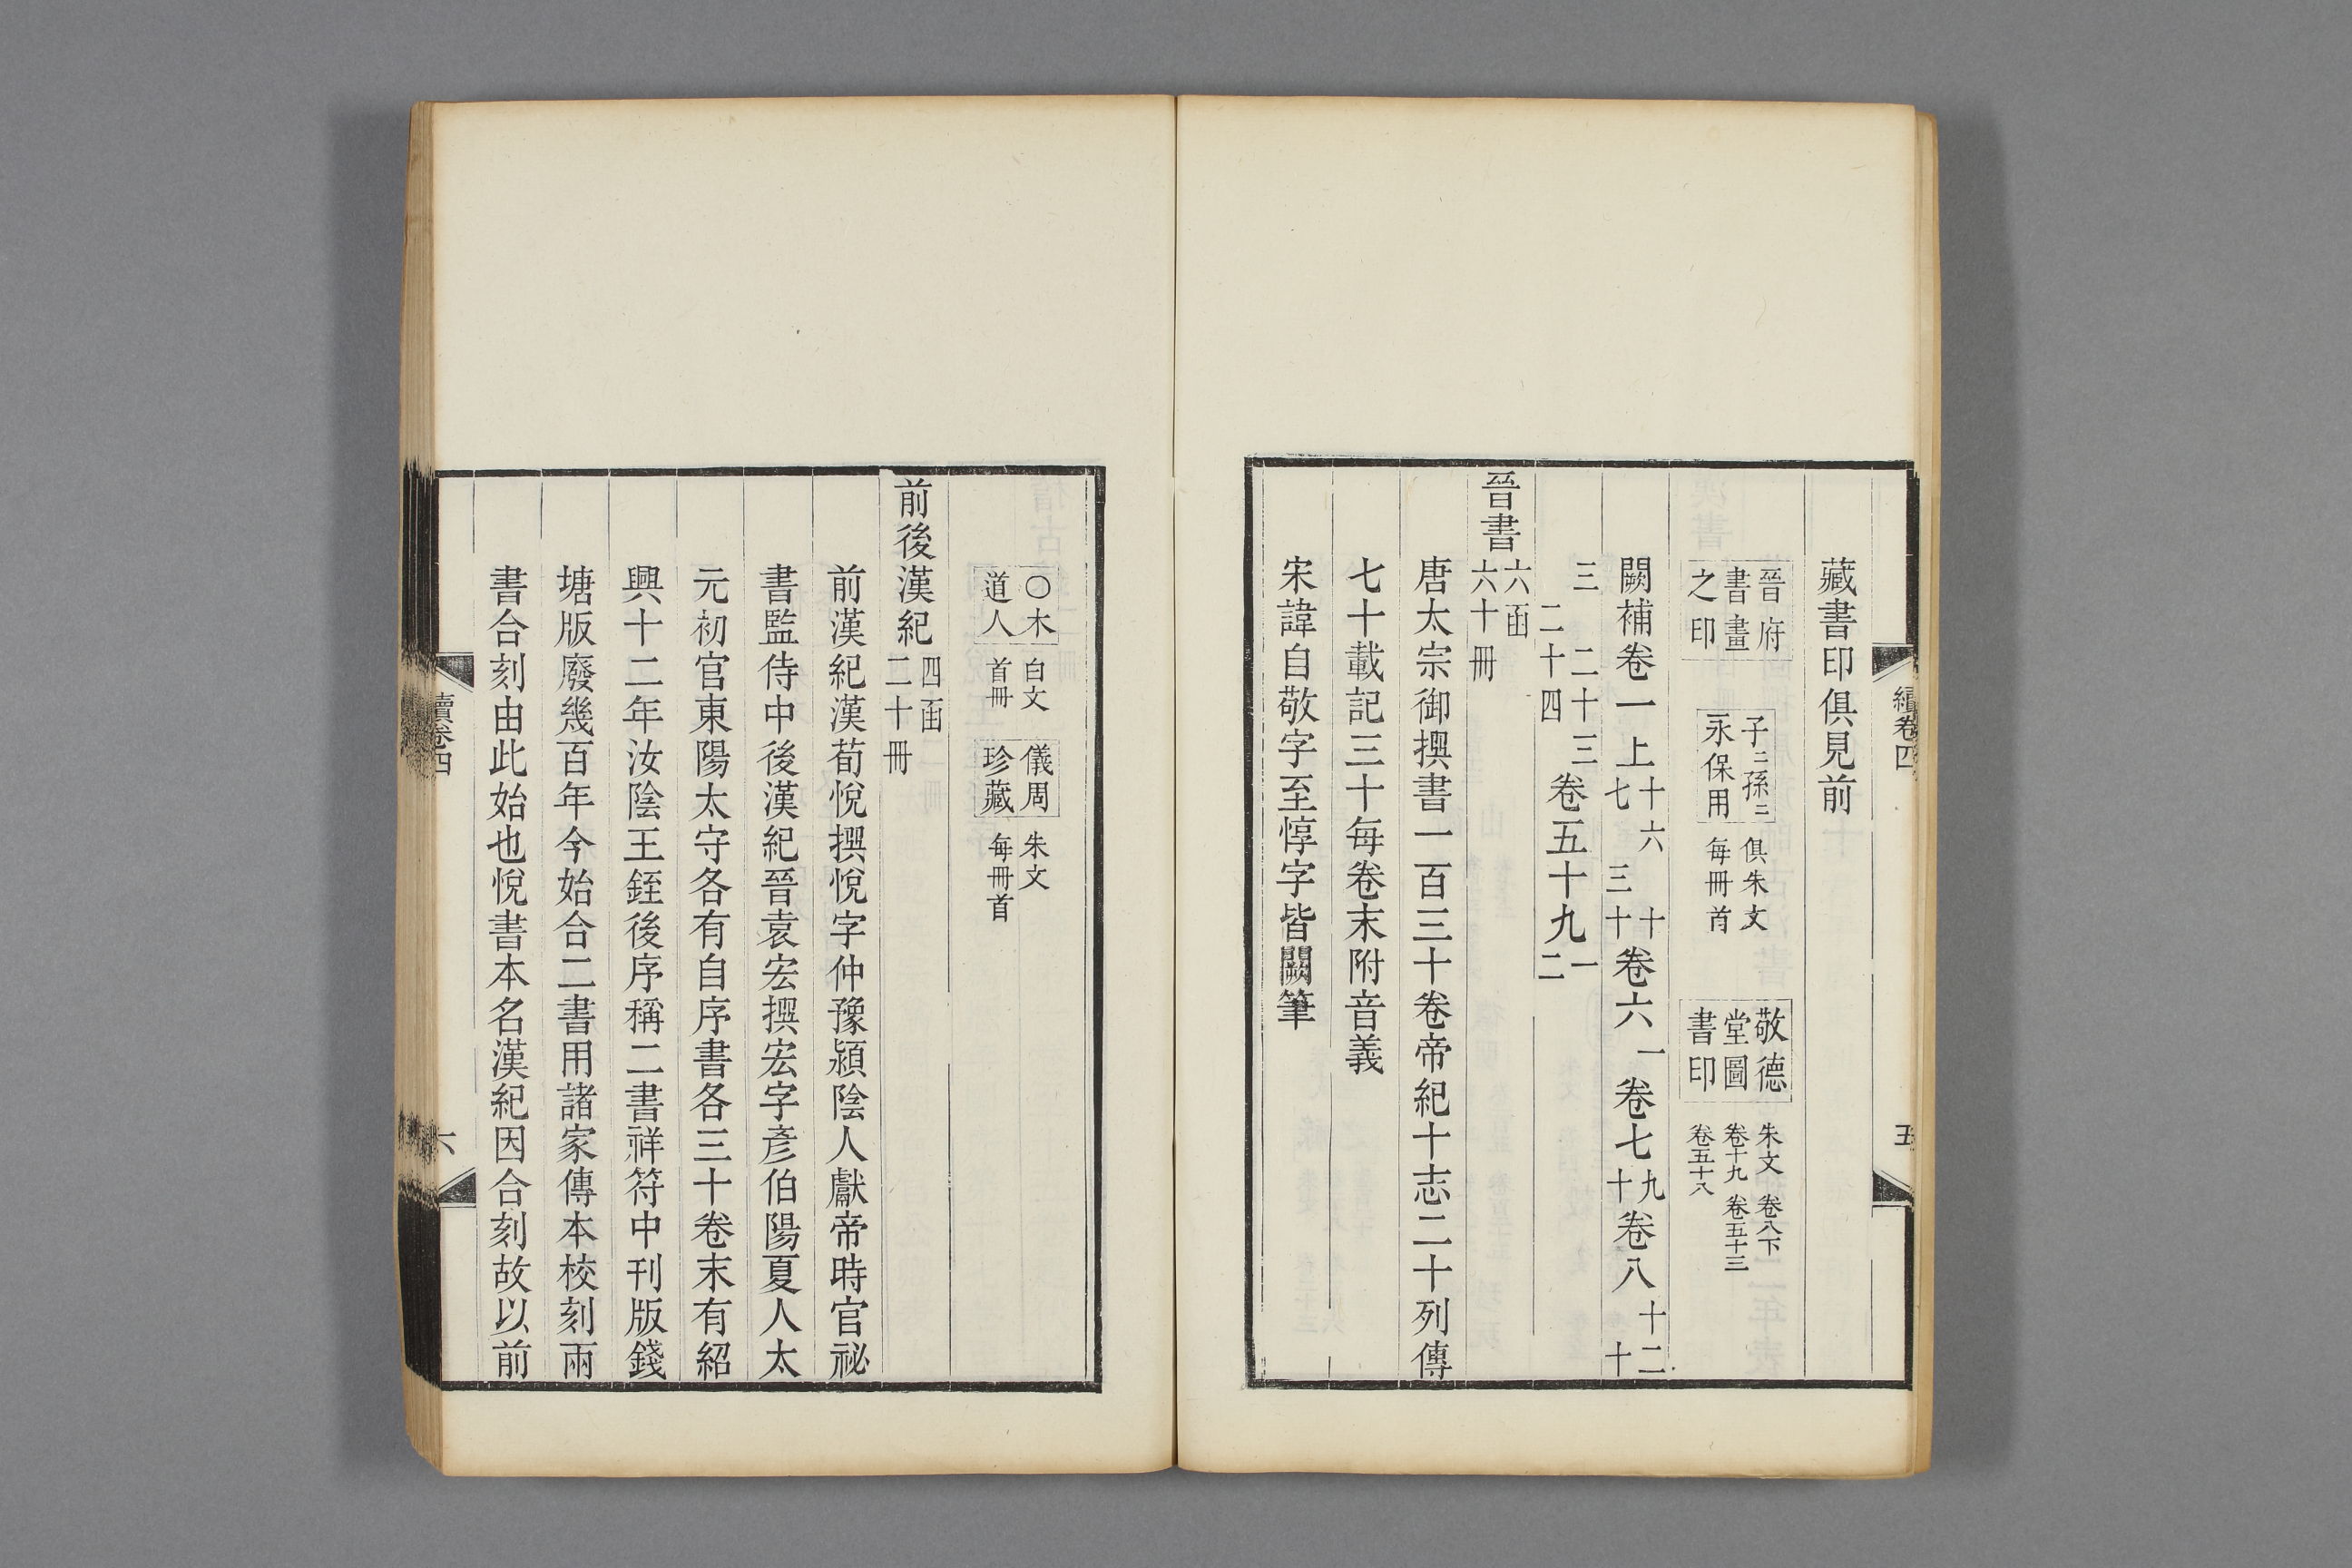 藏書印俱見前
晉府書畫之印
子二孫二永保用
俱朱文每冊首
敬德堂圖書印
朱文 卷八下 卷十九 卷五十三 卷五十八
闕補卷一上十六 七 十 三十卷六一卷七九 十卷八十二 十
三 二十三 二十四 卷五十九一 二
晉書六函 六十冊
唐太宗御撰書一百三十卷帝紀十志二十列傳
七十載記三十每卷末附音義
宋諱自敬字至惇字皆闕筆
續卷四
五
〇木道人
白文首冊
儀周珍藏
朱文每冊首
前後漢紀四函 二十冊
前漢紀漢荀悅撰悅字仲豫潁陰人獻帝時官祕
書監侍中後漢紀晉袁宏撰宏字彥伯陽夏人太
元初官東陽太守各有自序書各三十卷末有紹
興十二年汝陰王銍後序稱二書祥符中刊版錢
塘版廢幾百年今始合二書用諸家傳本校刻兩
書合刻由此始也悅書本名漢紀因合刻故以前
續卷四
六